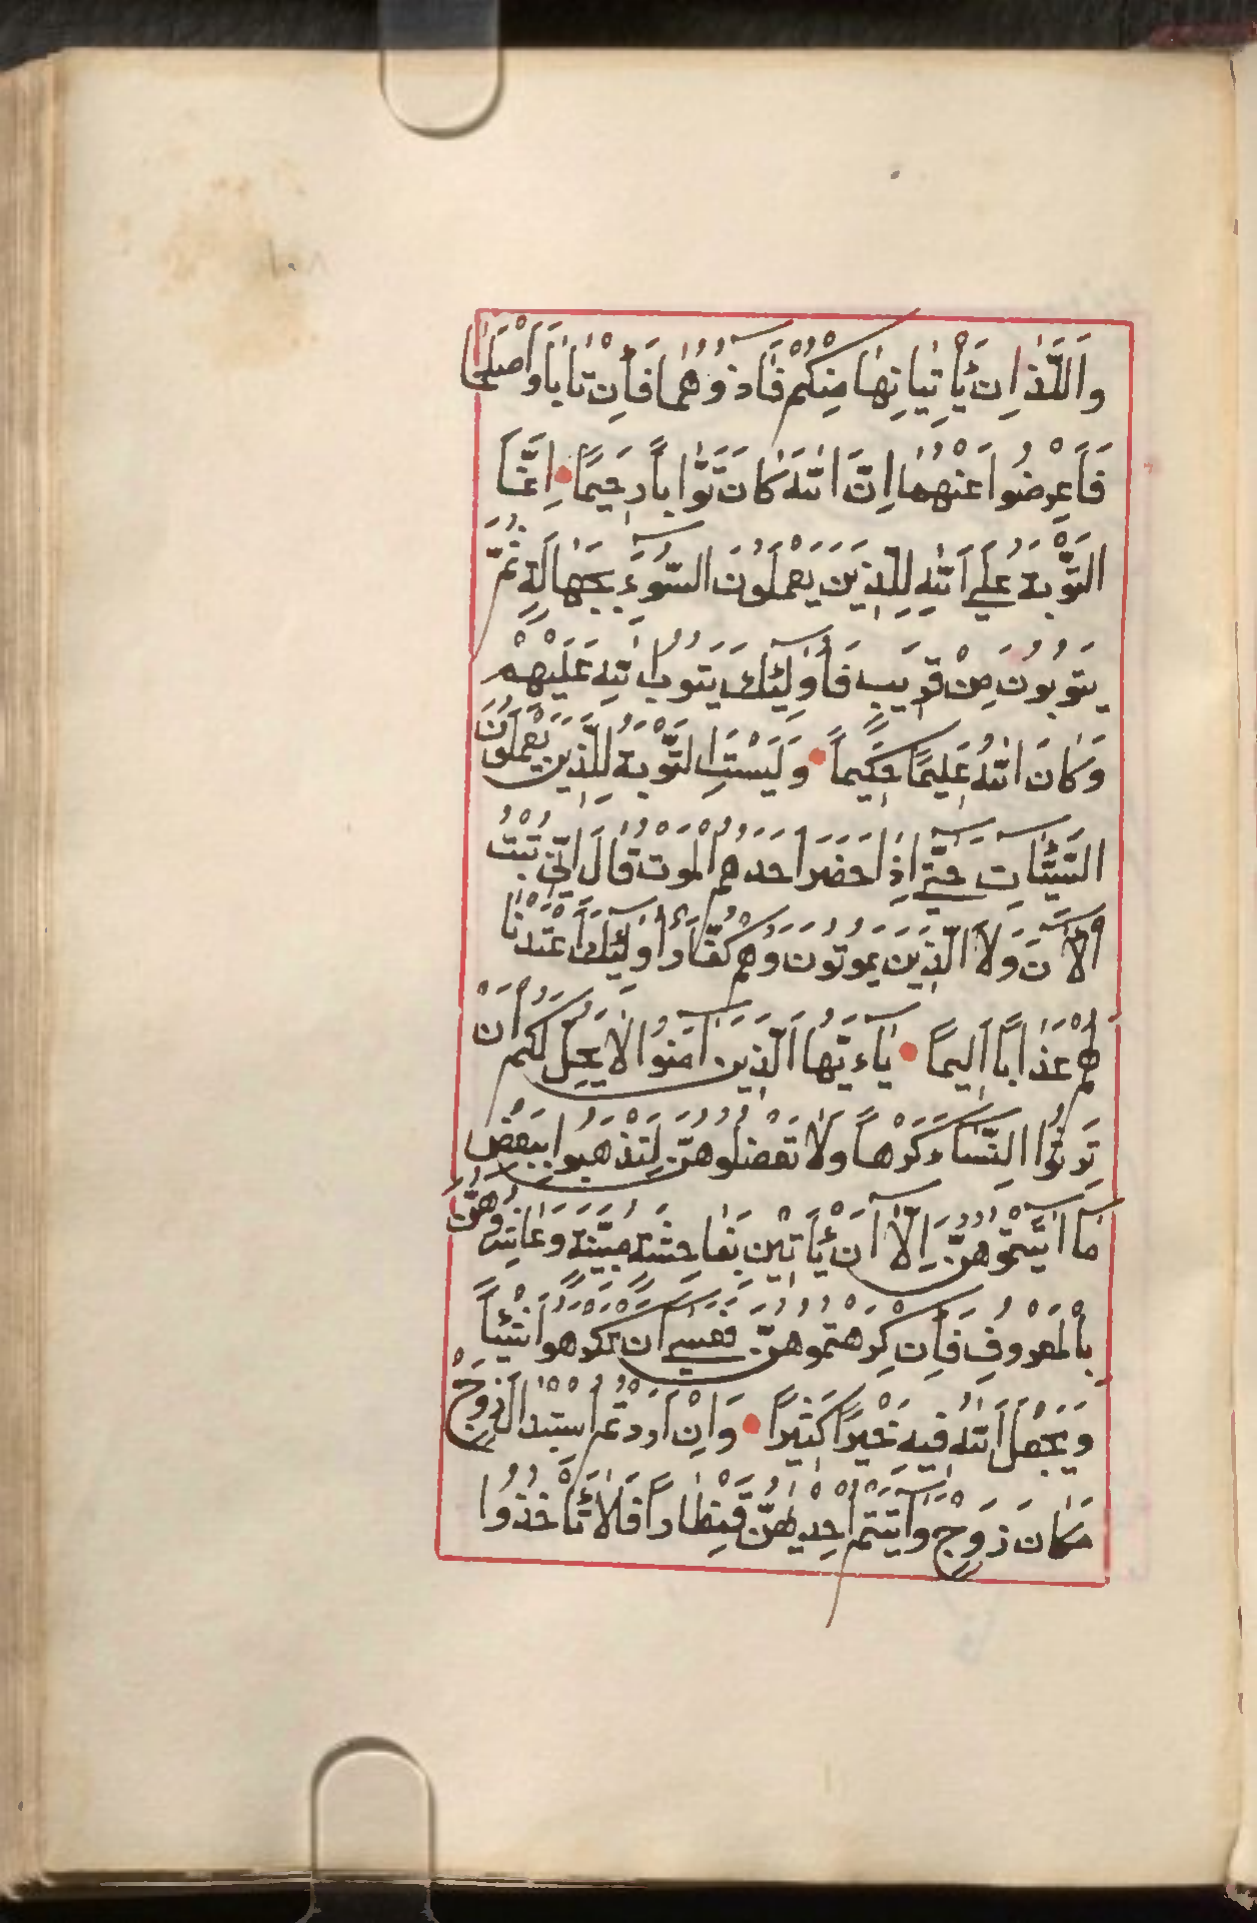 وَاَللَّذٰانِ يَأْتِيٰانِهٰا مِنْكُمْ فَاٰذُوهُمٰا فَاِنْ تٰابٰا وَاَصْلَحٰا
فَاَعْرِضُوا عَنْهُمٰا اِنَّ اللّٰهَ كٰانَ تَوّٰاباً رَحِيمًا اِنَّمَا
التَّوْبَةُ عَلَي اَللّٰهِ لِلَّذِينَ يَعْمَلُونَ السُّوٓءَ بِجَهٰالَةٍ ثُمَّ
يَتُوبُونَ مِنْ قَرِيبٍ فَاُولٰٓئِكَ يَتُوبُ اللّٰهُ عَلَيْهِمْ
وَكٰانَ اللّٰهُ عَلِيمًا حَكِيماً وَلَيْسَتِ التَّوْبَةُ لِلَّذِينَ يَعْمَلُونَ
السَّيِّئٰاتِ حَتّٰٓي اِذٰا حَضَرَ اَحَدَهُمُ الْمَوْتُ قٰالَ اِنِّي تُبْتُ
الْآنَ وَلاَ الَّذِينَ يَمُوتُونَ وَهُمْ كُفّٰارٌ اُولٰٓئِكَ اَعْتَدْنٰا
لَهُمْ عَذٰاباً اَلِيماً يٰاءَيُّهَا اَلَّذِينَ آمَنُوا لاٰ يَحِلُّ لَكُمْ اَنْ
تَرِثُوا النِّسٰاءَ كَرْهاً وَلاٰ تَعْضُلُوهُنَّ لِتَذْهَبُوا بِبَعْضِ
مٰا آتَيْتُمُوهُنَّ اِلّٰا اَنْ يَأْتِينَ بِفٰاحِشَةٍ مُبَيِّنَةٍ وَعٰاشِرُوهُنَّ
بِالْمَعْرُوفِ فَاِنْ كَرِهْتُمُوهُنَّ فَعَسٰٓي اَنْ تَكْرَهُوا شَيْئاً
وَيَجْعَلَ اَللّٰهُ فِيهِ خَيْرًا كَثِيراً وَاِنْ اَرَدْتُمُ اسْتِبْدٰالَ زَوْجٍ
مَكٰانَ زَوْجٍ وَآتَيْتُمْ اِحْدٰيهُنَّ قِنْطٰاراً فَلاٰ تَأْخُذُوا